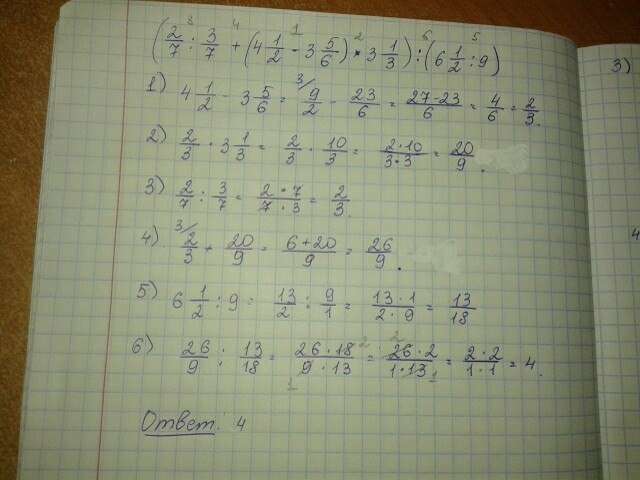 (2/7 : 3/7 + (4 1/2 - 3 5/6) • 3 1/3) : (6 1/2 : 9)
1) 4 1/2 - 3 5/6 = 9/2 - 23/6 = 27-23/6 = 4/6 = 2/3.
2) 2/3 · 3 1/3 = 2/3 · 10/3 = 2·10/3·3 = 20/9.
3) 2/7 : 3/7 = 2·7/7·3 = 2/3.
4) 2/3 + 20/9 = 6+20/9 = 26/9.
5) 6 1/2 : 9 = 13/2 : 9/1 = 13·1/2·9 = 13/18
6) 26/9 : 13/18 = 26·18/9·13 = 26·2/1·13 = 2·2/1·1 = 4.
Ответ: 4
3)
4